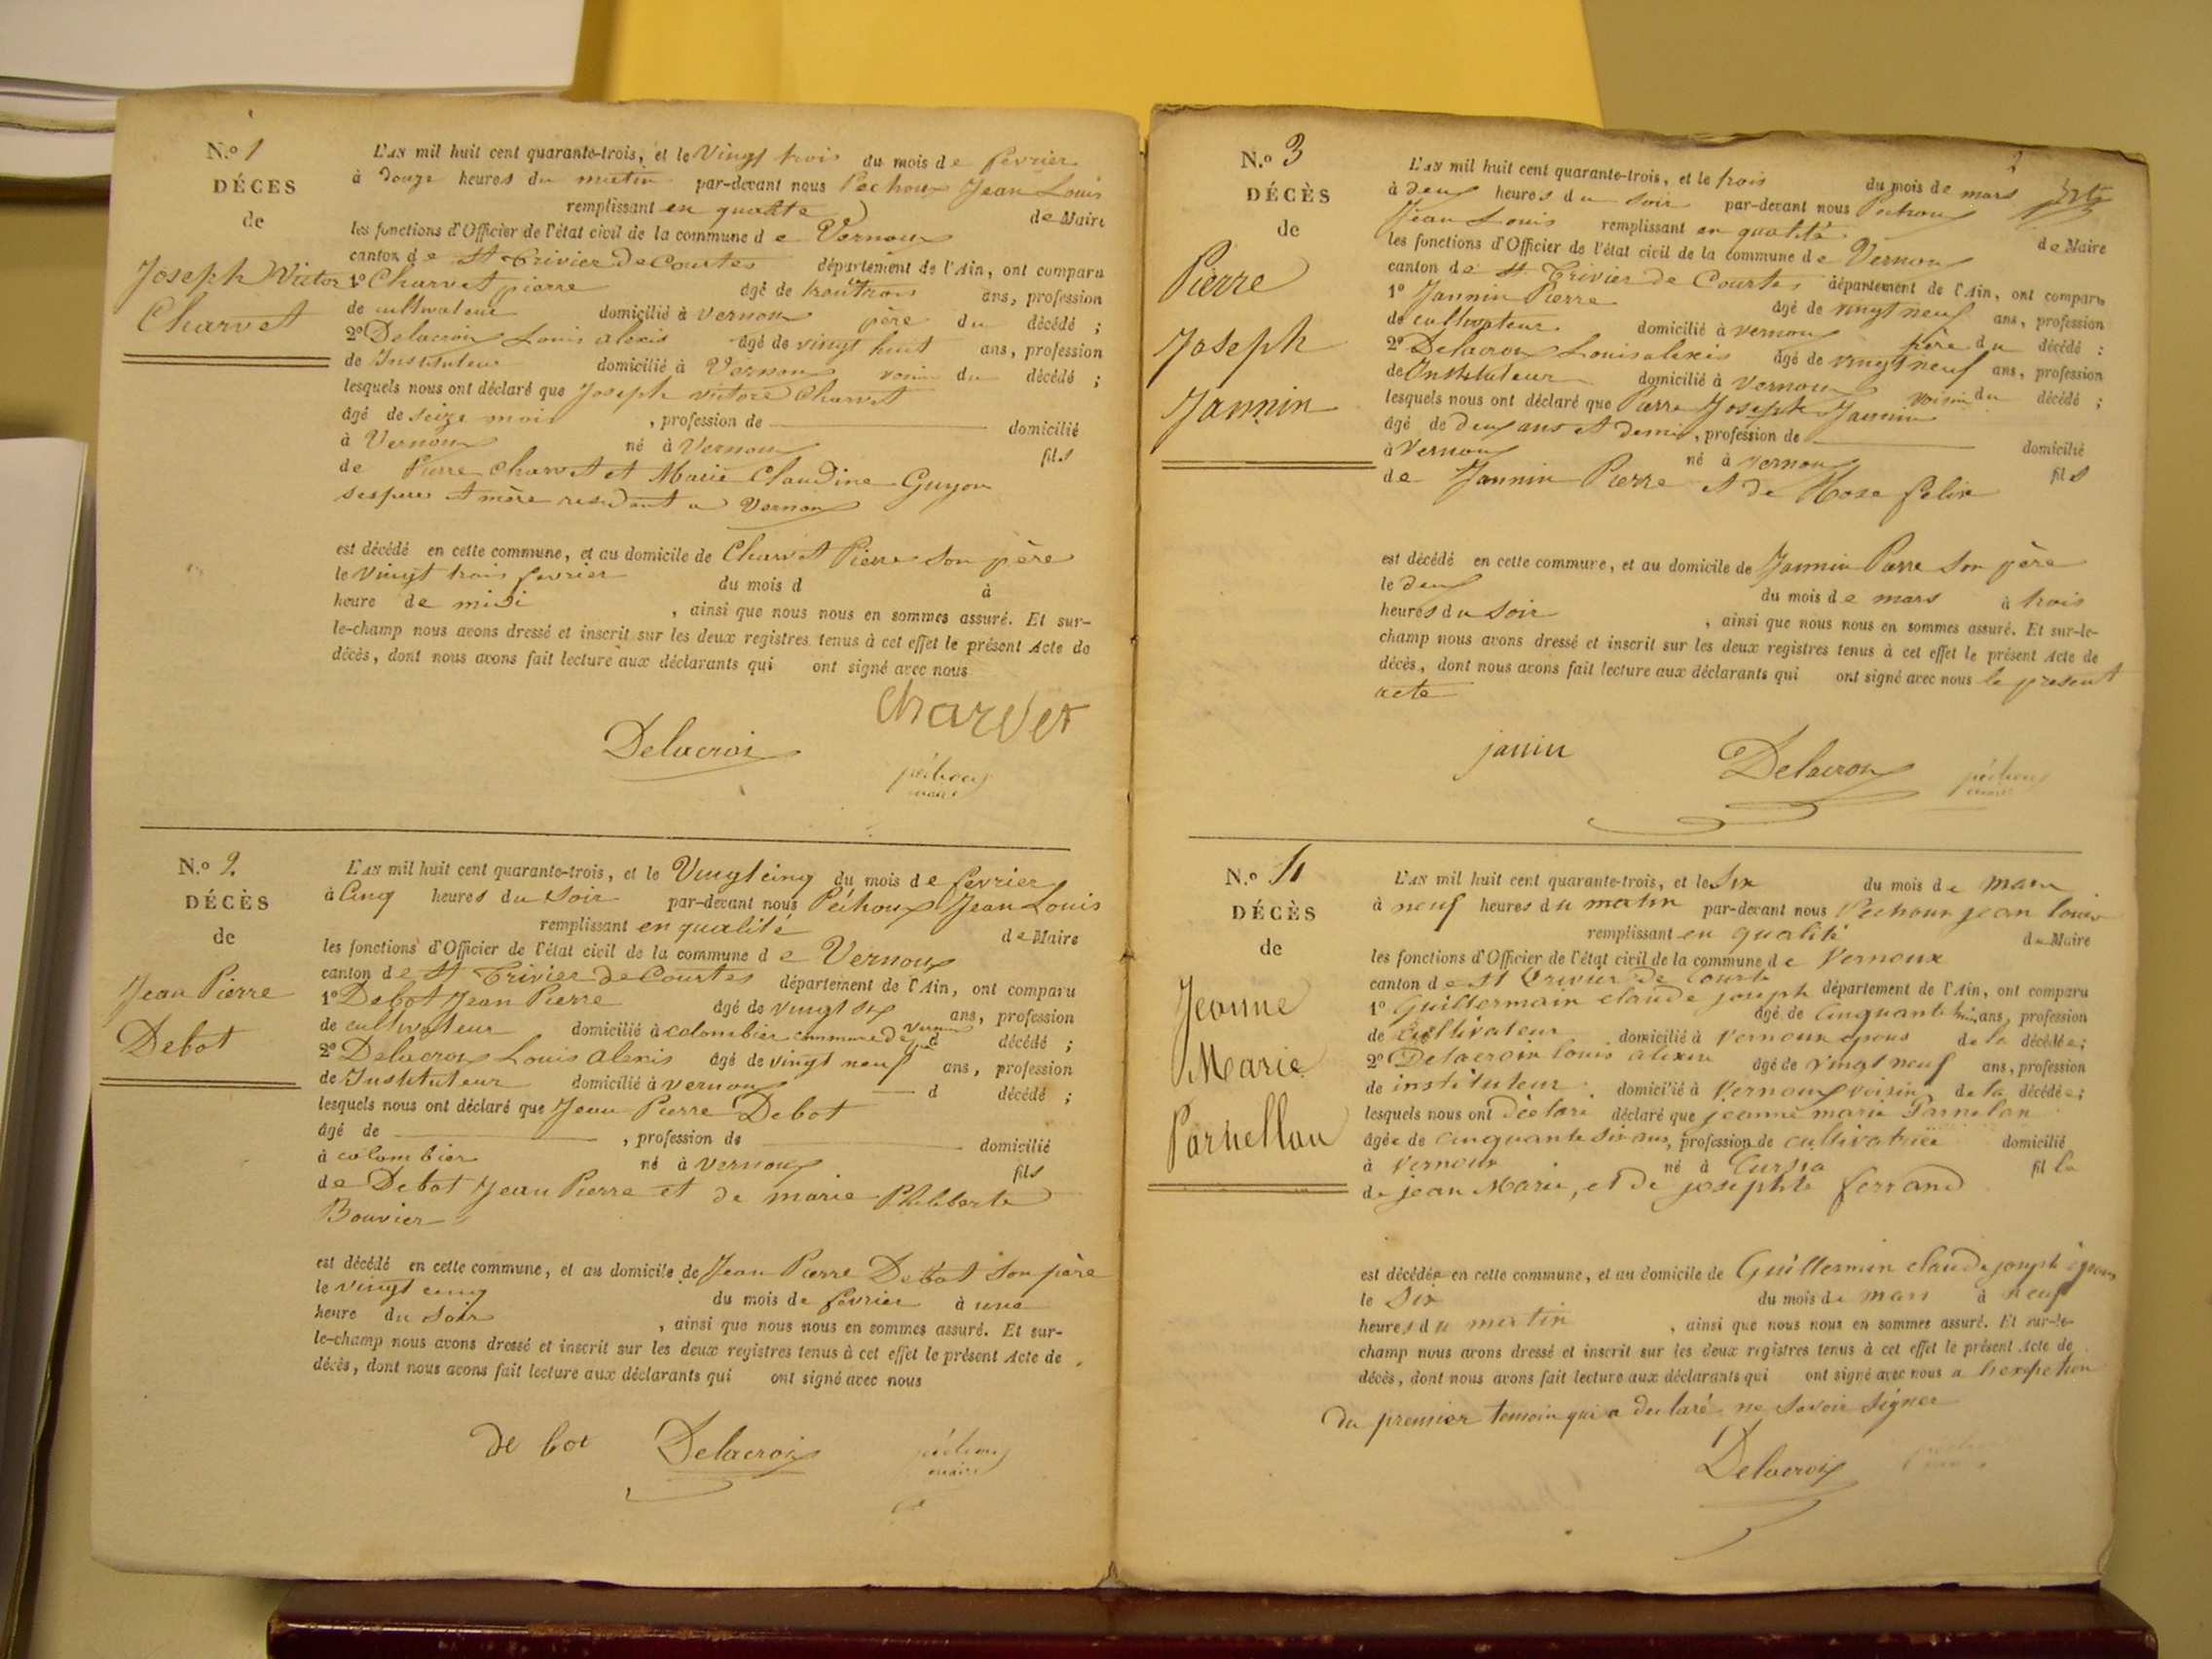 N.º 1
DÉCES
de
Joseph Victor
Charvet
L'AN mil huit cent quarante-trois, et le Vingt trois du mois de fevrier
à douze heures du matin par-devant nous Pechoux Jean Louis
remplissant en qualite de Maire
les fonctions d'Officier de l'état civil de la commune de Vernoux
canton de St Trivier de Courtes département de l'Ain, ont comparu
1º Charvet pierre âgé de trente trois ans, profession
de cultivateur domicilié à vernoux père du décédé ;
2º Delacroix Louis alexis âgé de vingt huit ans, profession
de Instituteur domicilié à Vernoux voisin du décédé ;
lesquels nous ont déclaré que Joseph victore Charvet
âgé de seize mois , profession de domicilié
à Vernoux né à Vernoux fils
de Pierre Charvet et Marie Claudine Guyon
ses pere et mère residant a Vernoux
est décédé en cette commune, et au domicile de Charvet Pierre son père
le vingt trois fevrier du mois d à
heure de midi , ainsi que nous nous en sommes assuré. Et sur-
le-champ nous avons dressé et inscrit sur les deux registres tenus à cet effet le présent Acte de
décès, dont nous avons fait lecture aux déclarants qui ont signé avec nous
Charvet
Delacroix
péchoux
maire
N.º 2
DÉCÈS
de
Jean Pierre
Debot
L'AN mil huit cent quarante-trois, et le Vingt cinq du mois de fevrier
à Cinq heures du Soir par-devant nous Péchoux Jean Louis
remplissant en qualité de Maire
les fonctions d'Officier de l'état civil de la commune de Vernoux
canton de St Trivier de Courtes département de l'Ain, ont comparu
1º Debot Jean Pierre âgé de vingt six ans, profession
de cultivateur domicilié à colombier commune de vernoux d décédé ;
2º Delacroix Louis Alexis âgé de vingt neuf ans, profession
de Instituteur domicilié à vernoux d décédé ;
lesquels nous ont déclaré que Jean Pierre Debot
âgé de , profession de domicilié
à colombier né à vernoux fils
de Debot Jean Pierre et de marie Philiberte
Bouvier
est décédé en cette commune, et au domicile de Jean Pierre Debot son père
le vingt cinq du mois de fevrier à une
heure du Soir , ainsi que nous nous en sommes assuré. Et sur-
le-champ nous avons dressé et inscrit sur les deux registres tenus à cet effet le présent Acte de
décès, dont nous avons fait lecture aux déclarants qui ont signé avec nous
de bot Delacroix péchoux
maire
N.º 3
DÉCÈS
de
Pierre
Joseph
Jannin
L'AN mil huit cent quarante-trois, et le trois du mois de mars
à deux heures du Soir par-devant nous Pechoux
Jean Louis remplissant en qualité de Maire
les fonctions d'Officier de l'état civil de la commune de Vernoux
canton de St Trivier de Courtes département de l'Ain, ont comparu
1º Jannin Pierre âgé de vingt neuf ans, profession
de cultivateur domicilié à vernoux père du décédé ;
2º Delacroix Louis alexis âgé de vingt neuf ans, profession
de Instituteur domicilié à vernoux voisin du décédé ;
lesquels nous ont déclaré que Pierre Joseph Jannin
âgé de deux ans et demi, profession de domicilié
à Vernoux né à vernoux fils
de Jannin Pierre et de Rose felix
est décédé en cette commune, et au domicile de Jannin Pierre son père
le deux du mois de mars à trois
heures du Soir , ainsi que nous nous en sommes assuré. Et sur-le-
champ nous avons dressé et inscrit sur les deux registres tenus à cet effet le présent Acte de
décès, dont nous avons fait lecture aux déclarants qui ont signé avec nous le present
acte
janin Delacroix péchoux
maire
N.º 4
DÉCÈS
de
Jeanne
Marie
Parnellau
L'AN mil huit cent quarante-trois, et le Six du mois de mars
à neuf heures du matin par-devant nous Pechoux jean louis
remplissant en qualité de Maire
les fonctions d'Officier de l'état civil de la commune de Vernoux
canton de St Trivier de Courte
1º Guillermain claude joseph département de l'Ain, ont comparu
âgé de cinquante huit ans, profession
de Cultivateur domicilié à vernoux epoux de la décédée ;
2º Delacroix louis alexis âgé de vingt neuf ans, profession
de instituteur domicilié à Vernoux voisin de la décédée ;
lesquels nous ont déclaré déclaré que jeanne marie Parnelan
âgée de cinquante six ans, profession de cultivatrice domicilié
à vernoux né à Cursia fille
de jean Marie, et de josephte ferrand
est décédée en cette commune, et au domicile de Guillermin claude joseph époux
le Six du mois de mars à neuf
heures du matin , ainsi que nous nous en sommes assuré. Et sur-le-
champ nous avons dressé et inscrit sur les deux registres tenus à cet effet le présent Acte de
décès, dont nous avons fait lecture aux déclarants qui ont signé avec nous a l'exception
du premier temoin qui a declaré ne savoir Signer
Delacroix